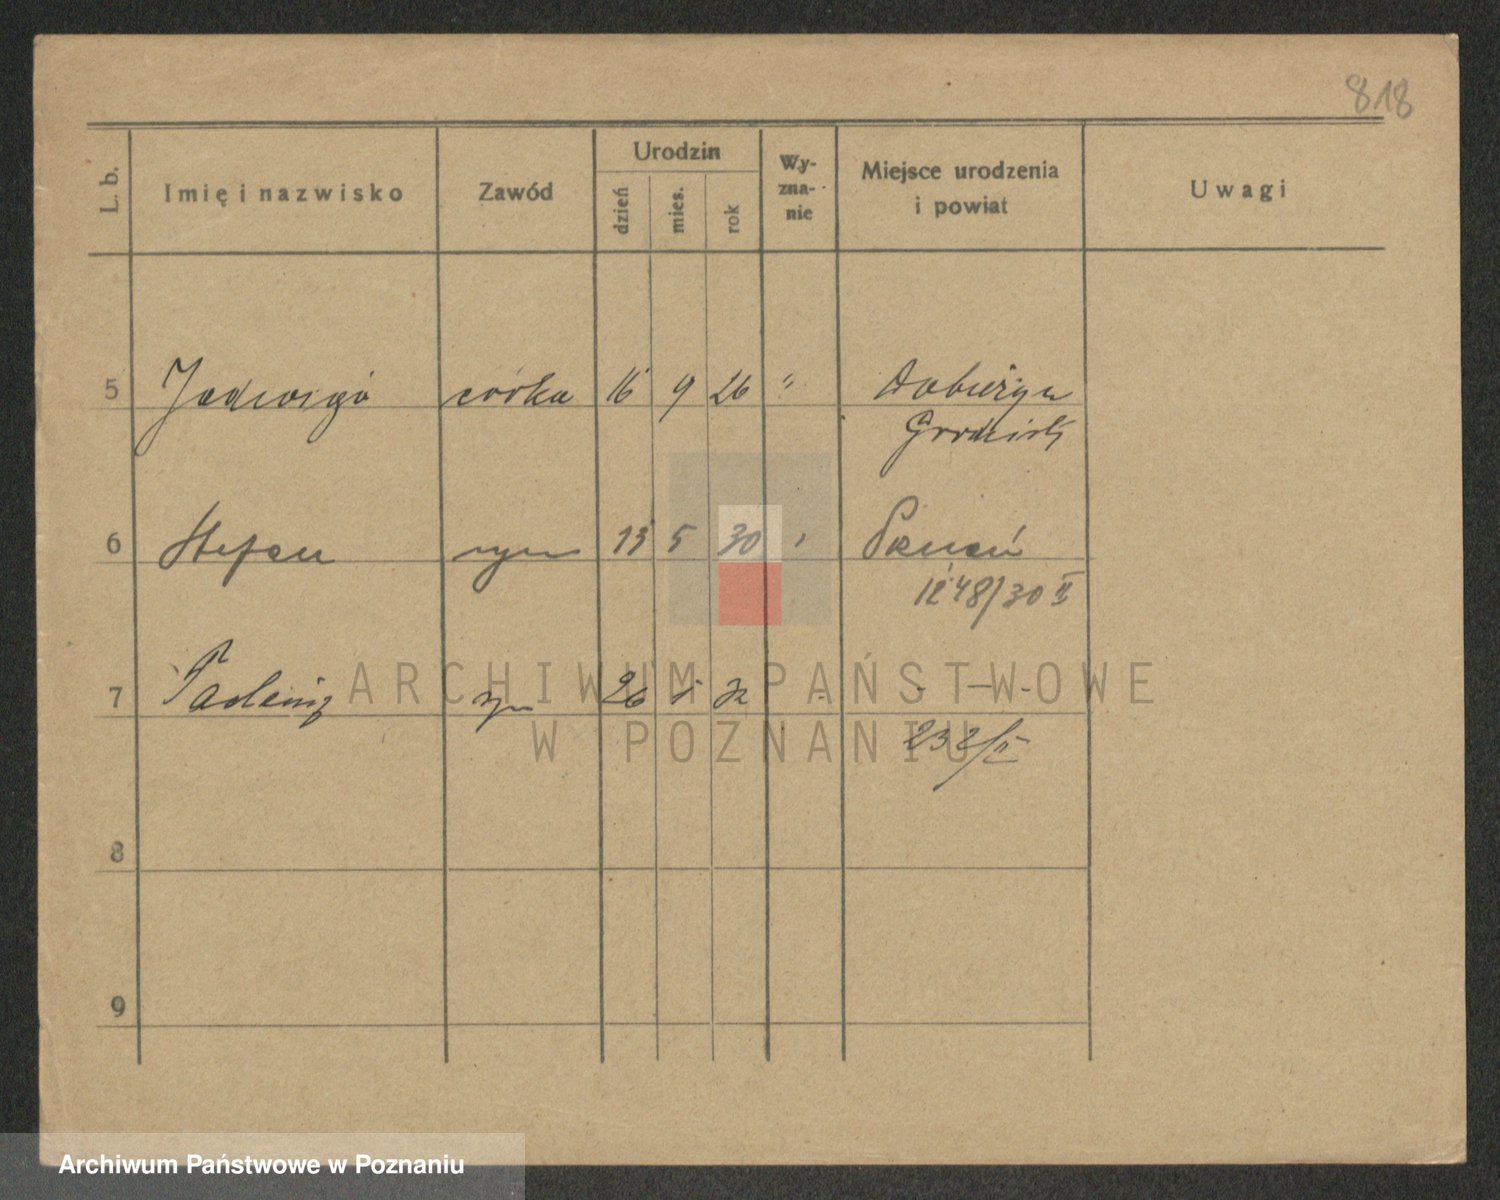 818
L. b.
Imię i nazwisko
Zawód
Urodzin
dzień
mies.
rok
Wy-
zna-
nie
Miejsce urodzenia
i powiat
Uwagi
5 Jadwiga córka 16 9 26 "
Grodzisk
6 Stefan syn 13 5 30 Poznań
1248/30 II
7 syn 26 1 32 - - -
232/II
8
9
ARCHIWUM PAŃSTWOWE
W POZNANIU
Archiwum Państwowe w Poznaniu